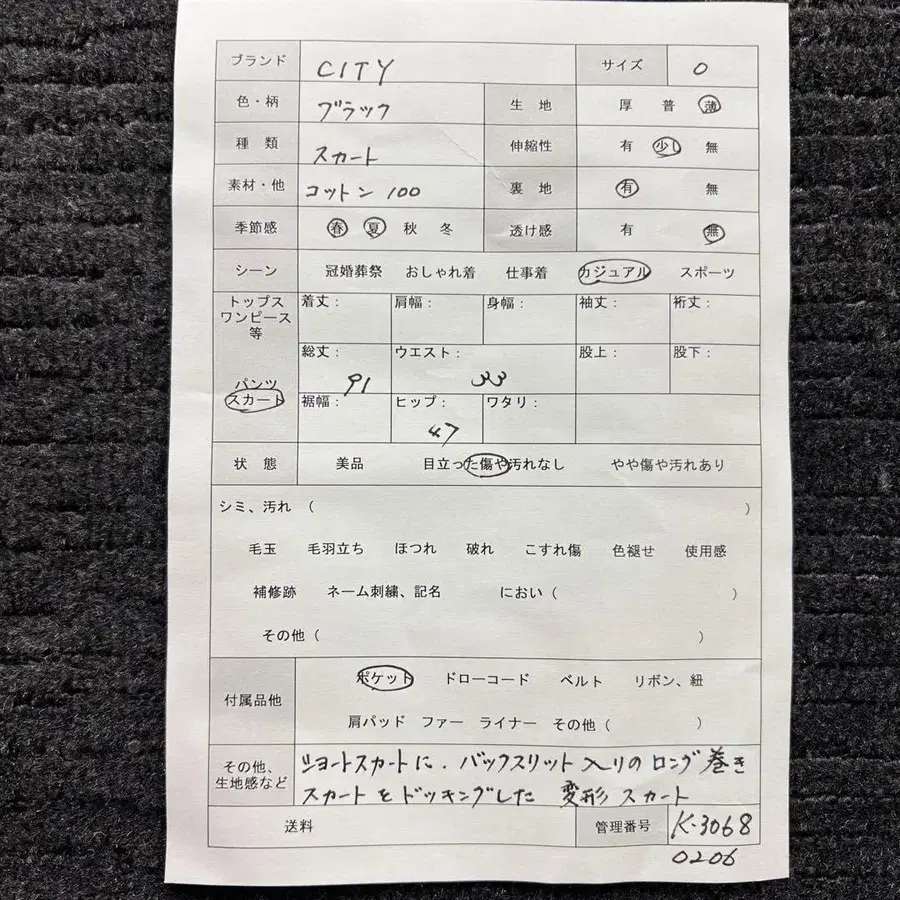 ブランド CITY サイズ 0
色・柄 ブラック 生地 厚 普 薄
種類 スカート 伸縮性 有 少し 無
素材・他 コットン 100 裏地 有 無
季節感 春 夏 秋 冬 透け感 有 無
シーン 冠婚葬祭 おしゃれ着 仕事着 カジュアル スポーツ
トップス
ワンピース
等
着丈: 肩幅: 身幅: 袖丈: 裄丈:
総丈: 91 ウエスト: 33 股上: 股下:
パンツ
スカート
裾幅: ヒップ: 47 ワタリ:
状態 美品 目立った傷や汚れなし やや傷や汚れあり
シミ、汚れ ( )
毛玉 毛羽立ち ほつれ 破れ こすれ傷 色褪せ 使用感
補修跡 ネーム刺繍、記名 におい ( )
その他 ( )
付属品他 ポケット ドローコード ベルト リボン、紐
肩パッド ファー ライナー その他 ( )
その他、
生地感など
ショートスカートに、バックスリット入りのロング巻き
スカートをドッキングした 変形スカート
送料 管理番号 K-3068
0206